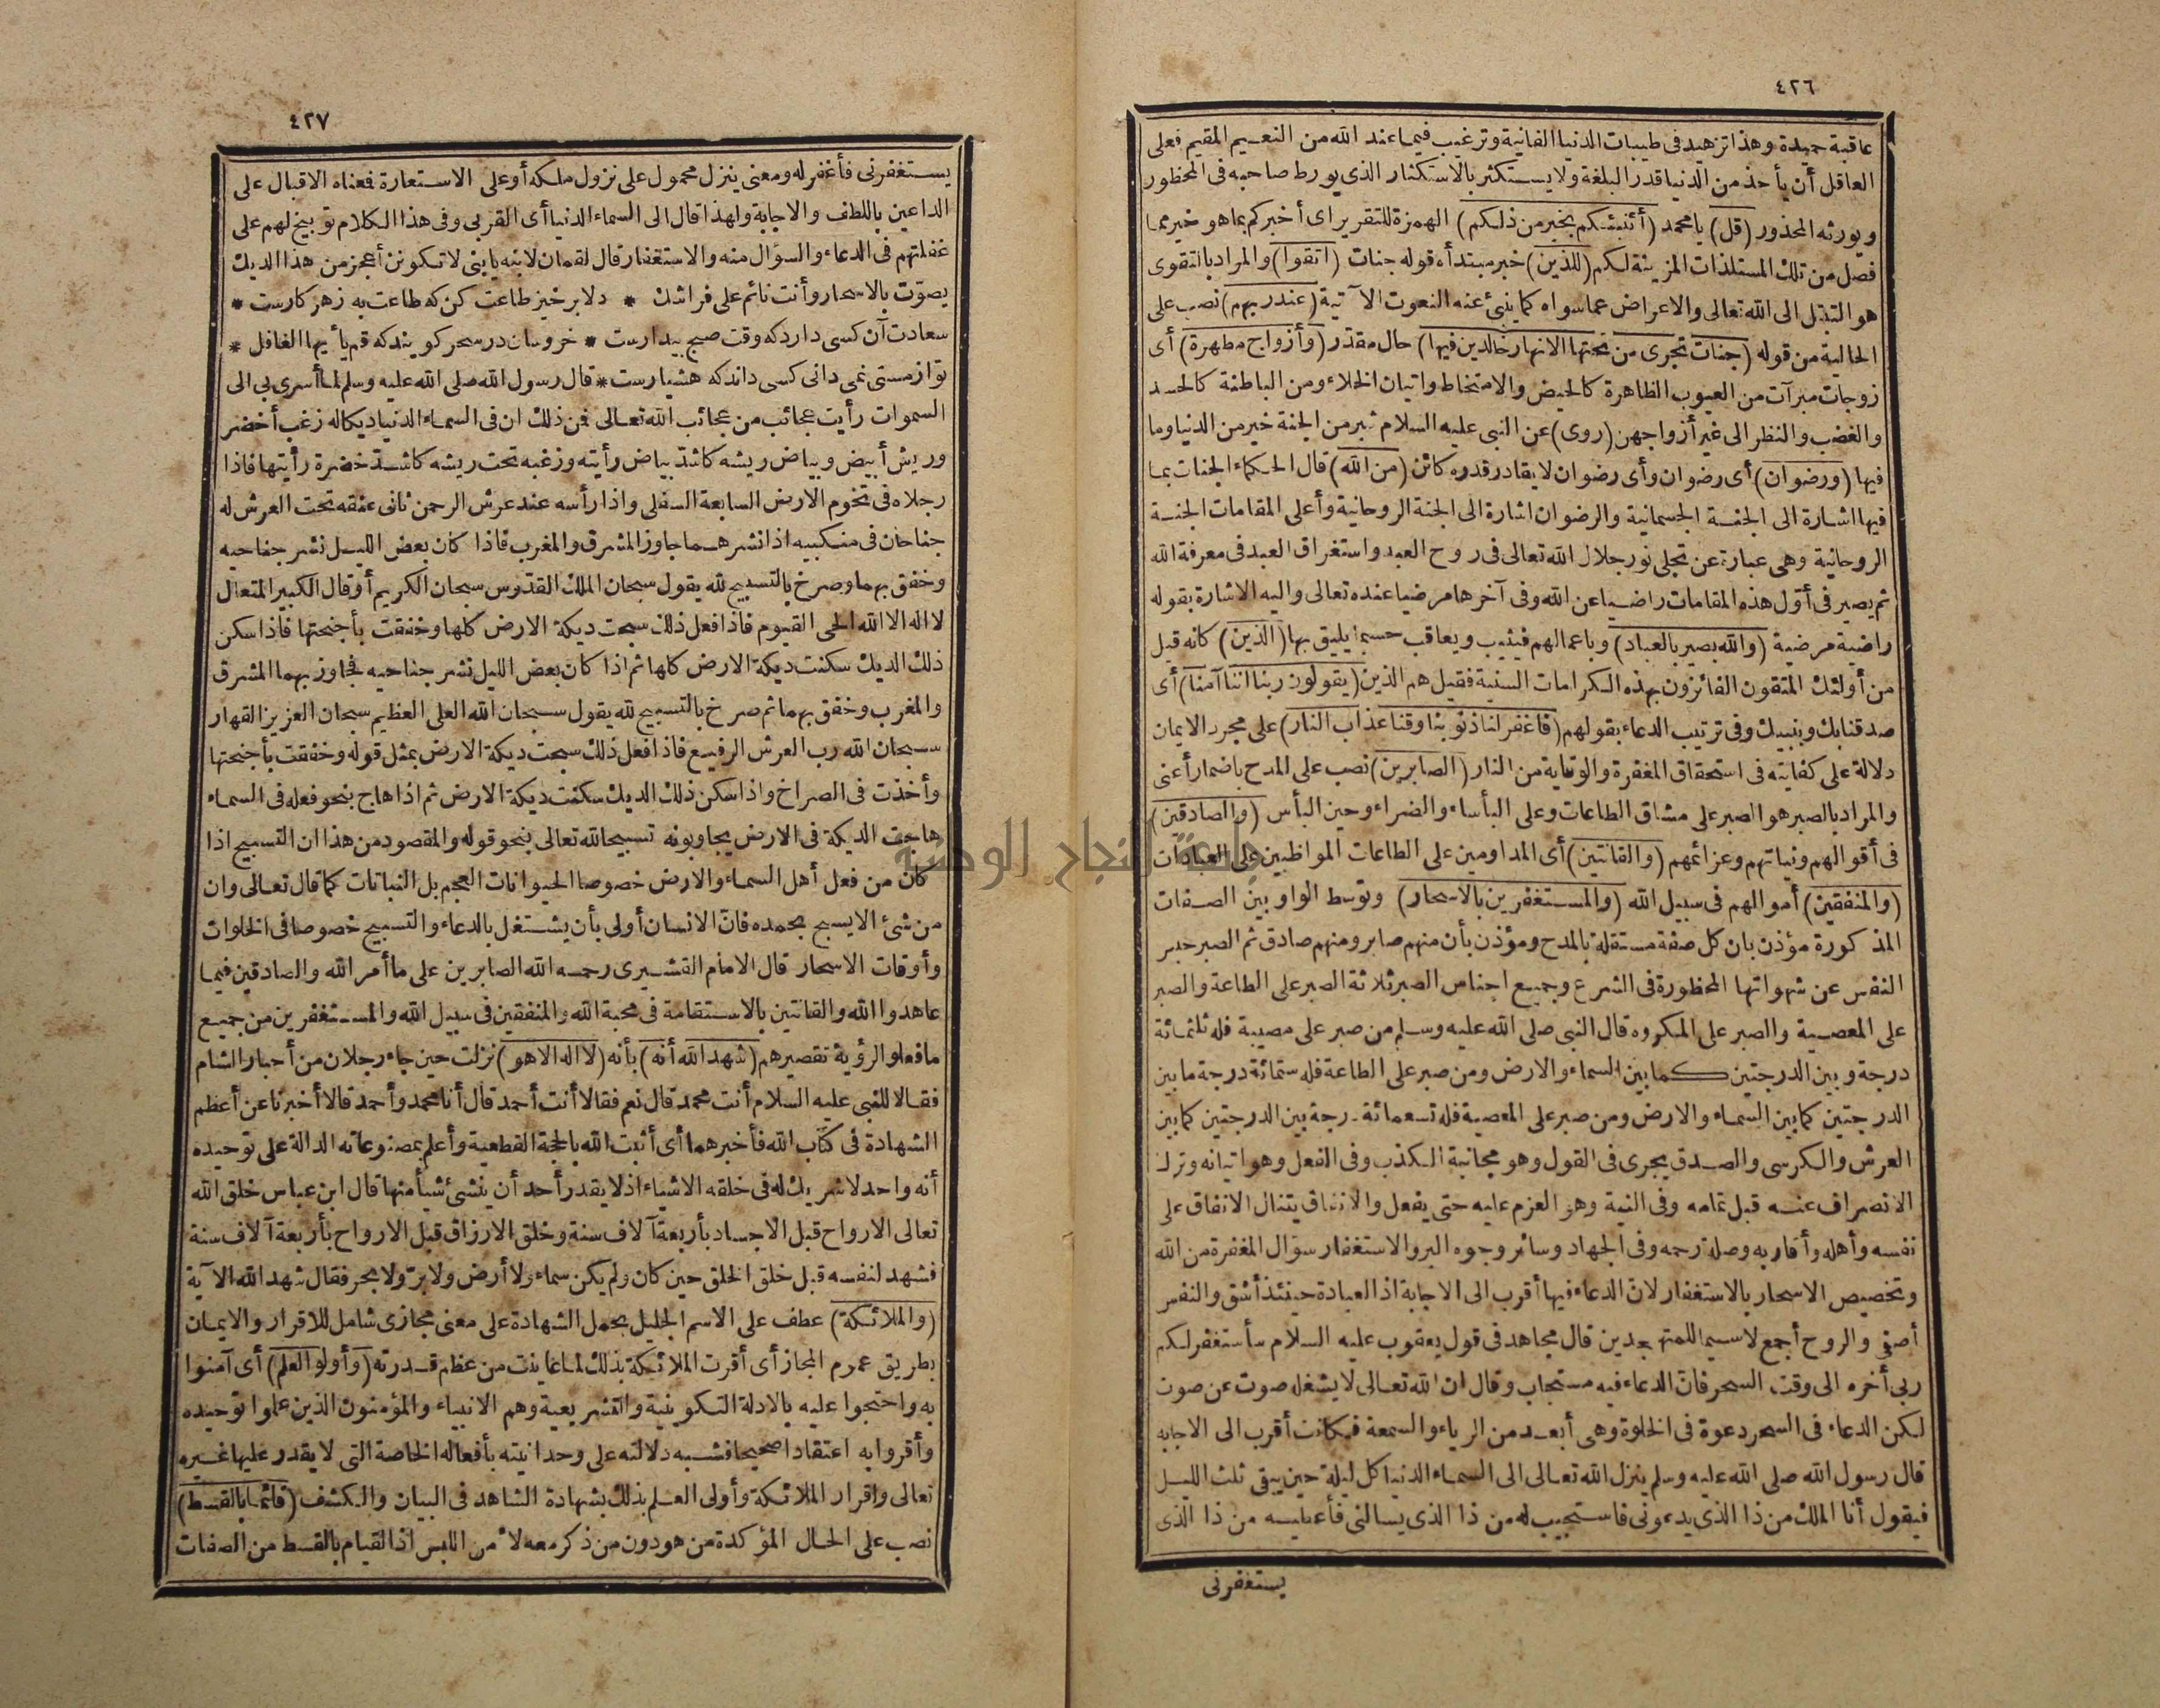 ٤٢٦
عاقبة حميدة وهذا تزهيد فى طيبات الدنيا الفانية وترغيب فيما عند الله من النعيم المقيم فعلى
العاقل أن يأخذ من الدنيا قدر البلغة ولا يستكثر بالاستكثار الذى يورط صاحبه فى المحظور
ويورثه المحذور (قل) يا محمد (أئنبئكم بخير من ذلكم) الهمزة للتقرير اى أخبركم بما هو خير مما
فصل من تلك المستلذات المزينة لكم (للذين) خبر مبتدأه قوله جنات (اتقوا) والمراد بالتقوى
هو التبتل الى الله تعالى والاعراض عما سواه كما ينبئ عنه النعوت الآتية (عند ربهم) نصب على
الحالية من قوله (جنات تجرى من تحتها الانهار خالدين فيها) حال مقدر (وأزواج مطهرة) أى
زوجات مبرآت من العيوب الظاهرة كالحيض والامتخاط واتيان الخلاء ومن الباطنة كالحسد
والغضب والنظر الى غير أزواجهن (روى) عن النبى عليه السلام شبر من الجنة خير من الدنيا وما
فيها (ورضوان) أى رضوان وأى رضوان لا يقادر قدره كائن (من الله) قال الحكماء الجنات بما
فيها اشارة الى الجنة الجسمانية والرضوان اشارة الى الجنة الروحانية وأعلى المقامات الجنة
الروحانية وهى عبارة عن تجلى نور جلال الله تعالى فى روح العبد واستغراق العبد فى معرفة الله
ثم يصير فى أول هذه المقامات راضيا عن الله وفى آخرها مرضيا عنده تعالى واليه الاشارة بقوله
راضية مرضية (والله بصير بالعباد) وباعمالهم فيثيب ويعاقب حسبما يليق بها (الذين) كأنه قيل
من أولئك المتقون الفائزون بهذه الكرامات السنية فقيل هم الذين (يقولون ربنا اننا آمنا) أى
صدقنا بك وبنبيك وفى ترتيب الدعاء بقولهم (فاغفر لنا ذنوبنا وقنا عذاب النار) على مجرد الايمان
دلالة على كفايته فى استحقاق المغفرة والوقاية من النار (الصابرين) نصب على المدح باضمار أعنى
والمراد بالصبر هو الصبر على مشاق الطاعات وعلى البأساء والضراء وحين البأس (والصادقين)
فى أقوالهم ونياتهم وعزائمهم (والقانتين) أى المداومين على الطاعات المواظبين على العبادات
(والمنفقين) أموالهم فى سبيل الله (والمستغفرين بالاسحار) وتوسط الواو بين الصفات
المذكورة مؤذن بان كل صفة مستقلة بالمدح ومؤذن بأن منهم صابر ومنهم صادق ثم الصبر حبس
النفس عن شهواتها المحظورة فى الشرع وجميع اجناس الصبر ثلاثة الصبر على الطاعة والصبر
على المعصية والصبر على المكروه قال النبى صلى الله عليه وسلم من صبر على مصيبة فله ثلثمائة
درجة وبين الدرجتين كما بين السماء والارض ومن صبر على الطاعة فله ستمائة درجة ما بين
الدرجتين كما بين السماء والارض ومن صبر على المعصية فله تسعمائة درجة بين الدرجتين كما بين
العرش والكرسى والصدق يجرى فى القول وهو مجانبة الكذب وفى الفعل وهو اتيانه وترك
الانصراف عنه قبل تمامه وفى النية وهو العزم عليه حتى يفعل والانفاق يتنال الانفاق على
نفسه وأهله وأقاربه وصلة رحمه وفى الجهاد وسائر وجوه البر والاستغفار سؤال المغفرة من الله
وتخصيص الاسحار بالاستغفار لان الدعاء فيها أقرب الى الاجابة اذ العبادة حينئذ أشق والنفس
أصفى والروح أجمع لاسيما للمتهجدين قال مجاهد فى قول يعقوب عليه السلام سأستغفر لكم
ربى أخره الى وقت السحر فان الدعاء فيه مستجاب وقال ان الله تعالى لا يشغله صوت عن صوت
لكن الدعاء فى السحر دعوة فى الخلوة وهى أبعد من الرياء والسمعة فكانت أقرب الى الاجابه
قال رسول الله صلى الله عليه وسلم ينزل الله تعالى الى السماء الدنيا كل ليلة حين يبقى ثلث الليل
فيقول أنا الملك من ذا الذى يدعونى فاستجيب له من ذا الذى يسالنى فأعطيه من ذا الذى
يستغفرنى
٤٢٧
يستغفرنى فأغفر له ومعنى ينزل محمول على نزول ملكه أو على الاستعارة فمعناه الاقبال على
الداعين باللطف والاجابة ولهذا قال الى السماء الدنيا أى القربى وفى هذا الكلام توبيخ لهم على
غفلتهم فى الدعاء والسؤال منه والاستغفار قال لقمان لابنه يا بنى لا تكونن أعجز من هذا الديك
يصوّت بالاسحار وأنت نائم على فراشك * دلا برخيز طاعت كن كه طاعت به زهر كارست *
سعادت آن كسى دارد كه وقت صبح بيدارست * خروسان در سحر كويند كه قم يا أيها الغافل *
تو از مستى نمى دانى كسى داند كه هشيارست * قال رسول الله صلى الله عليه وسلم لما أسرى بى الى
السموات رأيت عجائب من عجائب الله تعالى فمن ذلك ان فى السماء الدنيا ديكا له زغب أخضر
وريش أبيض وبياض ريشه كاشدّ بياض رأيته وزغبه تحت ريشه كاشدّ خضرة رأيتها فاذا
رجلاه فى تخوم الارض السابعة السفلى واذا رأسه عند عرش الرحمن ثانى عنقه تحت العرش له
جناحان فى منكبيه اذا نشرهما جاوز المشرق والمغرب فاذا كان بعض الليل نشر جناحيه
وخفق بهما وصرخ بالتسبيح لله يقول سبحان الملك القدّوس سبحان الكريم أو قال الكبير المتعال
لا اله الا الله الحى القيوم فاذا فعل ذلك سبحت ديكة الارض كلها وخفقت بأجنحتها فاذا سكن
ذلك الديك سكنت ديكة الارض كلها ثم اذا كان بعض الليل نشر جناحيه فجاوز بهما المشرق
والمغرب وخفق بهما ثم صرخ بالتسبيح لله يقول سبحان الله العلى العظيم سبحان العزيز القهار
سبحان الله رب العرش الرفيع فاذا فعل ذلك سبحت ديكة الارض بمثل قوله وخفقت بأجنحتها
وأخذت فى الصراخ واذا سكن ذلك الديك سكنت ديكة الارض ثم اذا هاج بنحو فعله فى السماء
هاجت الديكة فى الارض يجاوبونه تسبيحا لله تعالى بنحو قوله والمقصود من هذا ان التسبيح اذا
كان من فعل أهل السماء والارض خصوصا الحيوانات العجم بل النباتات كما قال تعالى وان
من شئ الا يسبح بحمده فانّ الانسان أولى بأن يشتغل بالدعاء والتسبيح خصوصا فى الخلوات
وأوقات الاسحار قال الامام القشيرى رحمه الله الصابرين على ما أمر الله والصادقين فيما
عاهدوا الله والقانتين بالاستقامة فى محبة الله والمنفقين فى سبيل الله والمستغفرين من جميع
ما فعلوا لرؤية تقصيرهم (شهد الله أنه) بأنه (لا اله الا هو) نزلت حين جاء رجلان من أحبار الشام
فقالا للنبى عليه السلام أنت محمد قال نعم فقالا أنت أحمد قال أنا محمد وأحمد قالا أخبرنا عن أعظم
الشهادة فى كتاب الله فأخبرهما أى أثبت الله بالحجة القطعية وأعلم بمصنوعاته الدالة على توحيده
أنه واحد لا شريك له فى خلقه الاشياء اذ لا يقدر أحد أن ينشئ شيأ منها قال ابن عباس خلق الله
تعالى الارواح قبل الاجساد بأربعة آلاف سنة وخلق الارزاق قبل الارواح بأربعة آلاف سنة
فشهد لنفسه قبل خلق الخلق حين كان ولم يكن سماء ولا أرض ولا برّ ولا بحر فقال شهد الله الآية
(والملائكة) عطف على الاسم الجليل بحمل الشهادة على معنى مجازى شامل للاقرار والايمان
بطريق عموم المجاز أى أقرت الملائكة بذلك لما عاينت من عظم قدرته (وأولو العلم) أى آمنوا
به واحتجوا عليه بالادلة التكوينية والتشريعية وهم الانبياء والمؤمنون الذين علموا توحيده
وأقروا به اعتقادا صحيحا فشبه دلالته على وحدانيته بأفعاله الخاصة التى لا يقدر عليها غيره
تعالى واقرار الملائكة وأولى العلم بذلك بشهادة الشاهد فى البيان والكشف (قائما بالقسط)
نصب على الحال المؤكدة من هو دون من ذكر معه لأمن اللبس اذ القيام بالقسط من الصفات
جامعة النجاح الوطنية